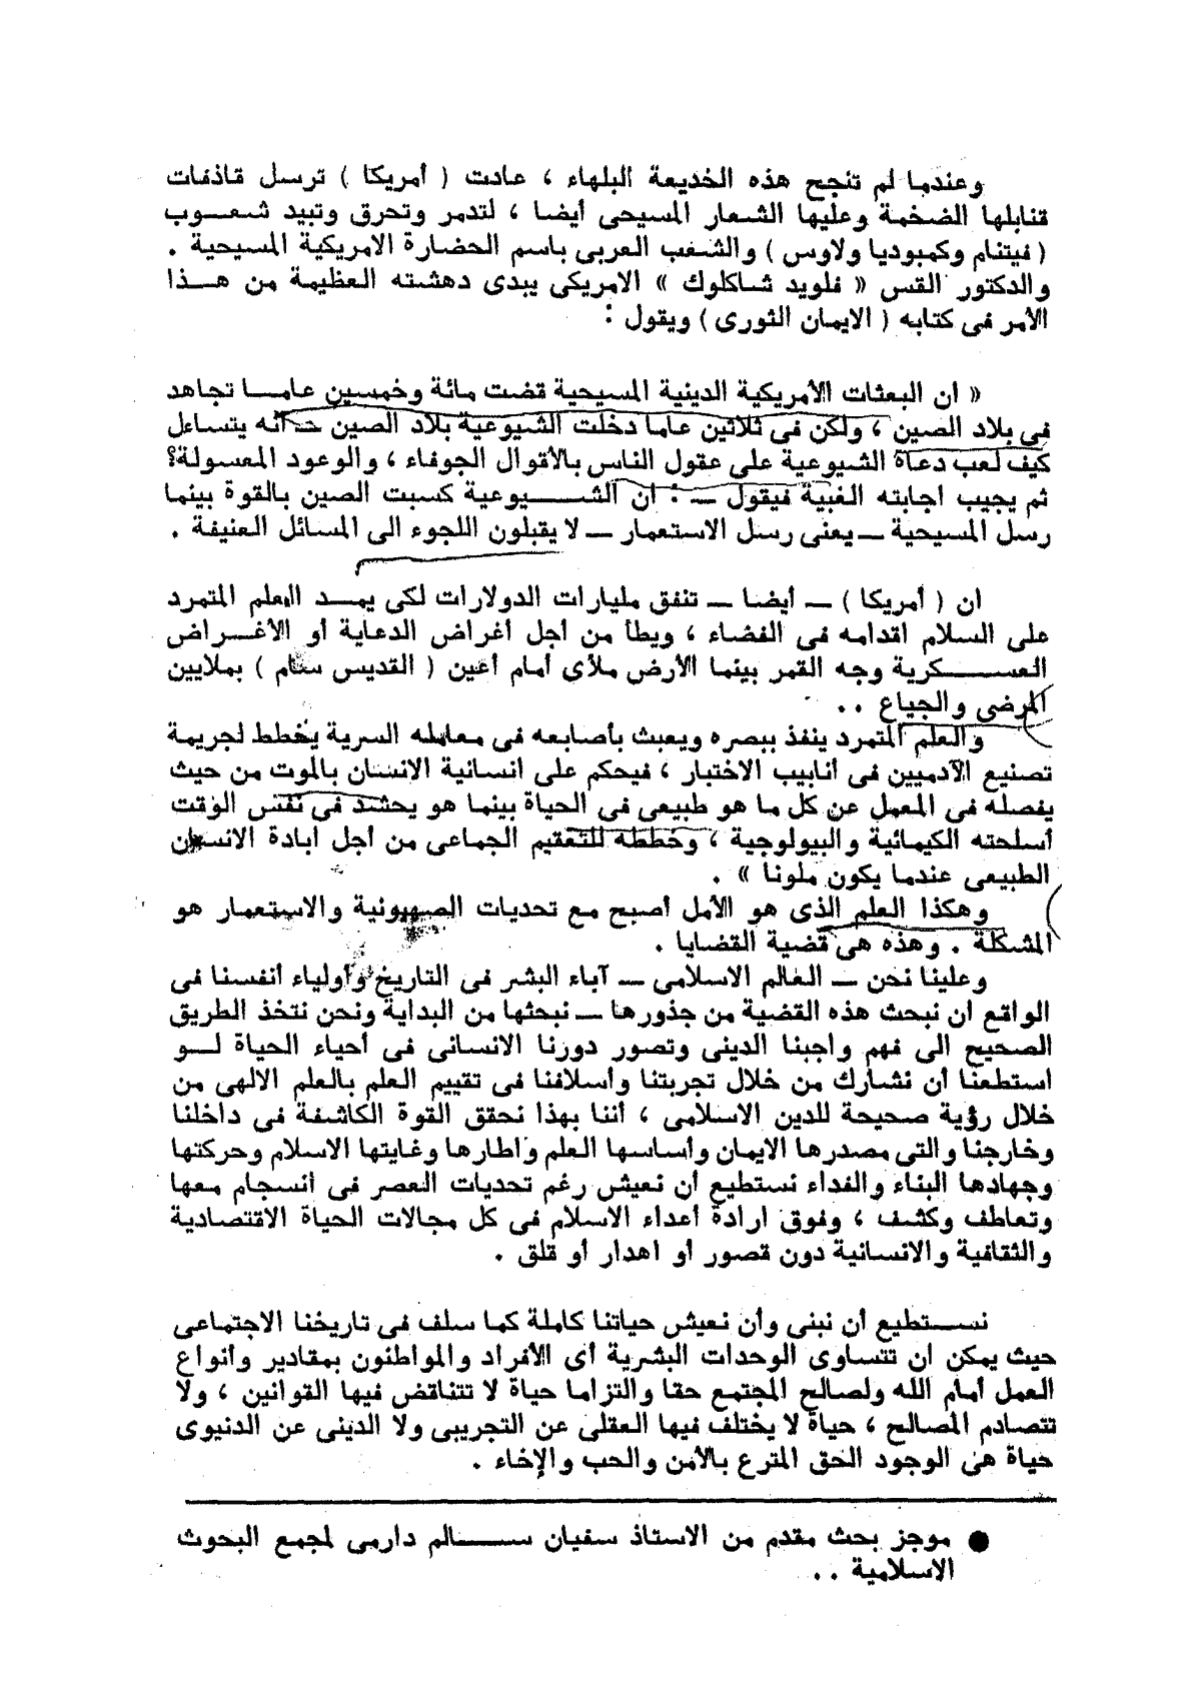 وعندما لم تنجح هذه الخديعة البلهاء ، عادت ( أمريكا ) ترسل قاذفات
قنابلها الضخمة وعليها الشعار المسيحى أيضا ، لتدمر وتحرق وتبيد شعوب
( فيتنام وكمبوديا ولاوس ) والشعب العربى باسم الحضارة الامريكية المسيحية .
والدكتور القس « فلويد شاكلوك » الامريكى يبدى دهشته العظيمة من هذا
الأمر فى كتابه ( الايمان الثورى ) ويقول :
« ان البعثات الأمريكية الدينية المسيحية قضت مائة وخمسين عاما تجاهد
فى بلاد الصين ، ولكن فى ثلاثين عاما دخلت الشيوعية بلاد الصين كأنه يتساءل
كيف لعب دعاة الشيوعية على عقول الناس بالأقوال الجوفاء ، والوعود المعسولة؟
ثم يجيب اجابته الغبية فيقول — : ان الشيوعية كسبت الصين بالقوة بينما
رسل المسيحية — يعنى رسل الاستعمار — لا يقبلون اللجوء الى المسائل العنيفة .
ان ( أمريكا ) — أيضا — تنفق مليارات الدولارات لكى يمد العلم المتمرد
على السلام اقدامه فى الفضاء ، ويطأ من أجل أغراض الدعاية أو الأغراض
العسكرية وجه القمر بينما الأرض ملأى أمام أعين ( القديس سام ) بملايين
المرضى والجياع . .
والعلم المتمرد ينفذ ببصره ويعبث بأصابعه فى معامله السرية يخطط لجريمة
تصنيع الآدميين فى أنابيب الاختبار ، فيحكم على انسانية الانسان بالموت من حيث
يفصله فى المعمل عن كل ما هو طبيعى فى الحياة بينما هو يحشد فى نفس الوقت
أسلحته الكيمائية والبيولوجية ، وخططه للتعقيم الجماعى من أجل ابادة الانسان
الطبيعى عندما يكون ملونا » .
وهكذا العلم الذى هو الأمل أصبح مع تحديات الصهيونية والاستعمار هو
المشكلة . وهذه هى قضية القضايا .
وعلينا نحن — العالم الاسلامى — آباء البشر فى التاريخ وأولياء أنفسنا فى
الواقع ان نبحث هذه القضية من جذورها — نبحثها من البداية ونحن نتخذ الطريق
الصحيح الى فهم واجبنا الدينى وتصور دورنا الانسانى فى أحياء الحياة لو
استطعنا أن نشارك من خلال تجربتنا وأسلافنا فى تقييم العلم بالعلم الالهى من
خلال رؤية صحيحة للدين الاسلامى ، أننا بهذا نحقق القوة الكاشفة فى داخلنا
وخارجنا والتى مصدرها الايمان وأساسها العلم واطارها وغايتها الاسلام وحركتها
وجهادها البناء والفداء نستطيع أن نعيش رغم تحديات العصر فى انسجام معها
وتعاطف وكشف ، وفوق ارادة أعداء الاسلام فى كل مجالات الحياة الاقتصادية
والثقافية والانسانية دون قصور أو اهدار أو قلق .
نستطيع أن نبنى وأن نعيش حياتنا كاملة كما سلف فى تاريخنا الاجتماعى
حيث يمكن ان تتساوى الوحدات البشرية أى الأفراد والمواطنون بمقادير وأنواع
العمل أمام الله ولصالح المجتمع حقا والتزاما حياة لا تتناقض فيها القوانين ، ولا
تتصادم المصالح ، حياة لا يختلف فيها العقلى عن التجريبى ولا الدينى عن الدنيوى
حياة هى الوجود الحق المترع بالأمن والحب والإخاء .
● موجز بحث مقدم من الاستاذ سفيان سالم دارمى لمجمع البحوث
الاسلامية . .